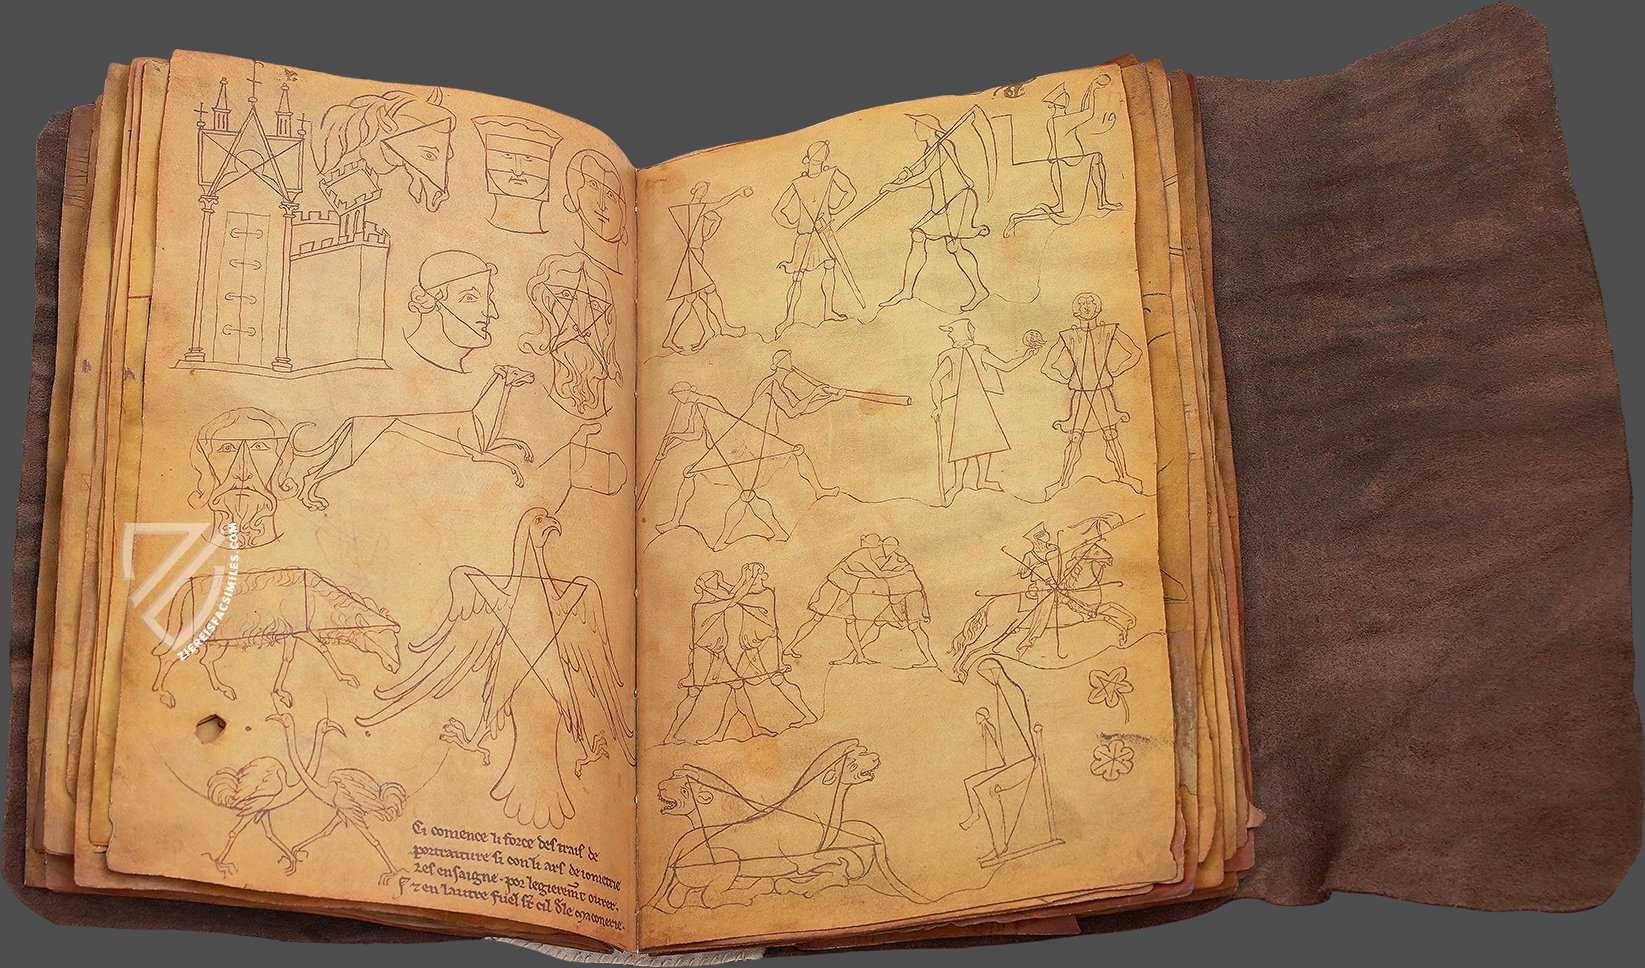 19
ZIEREISFACSIMILES.COM
Ci comence li force des trais de
portraiture si con li ars de iometrie
les ensaigne · por legierem̄t ovrer.
⁊ en lautre fuel st cil dele maconerie.